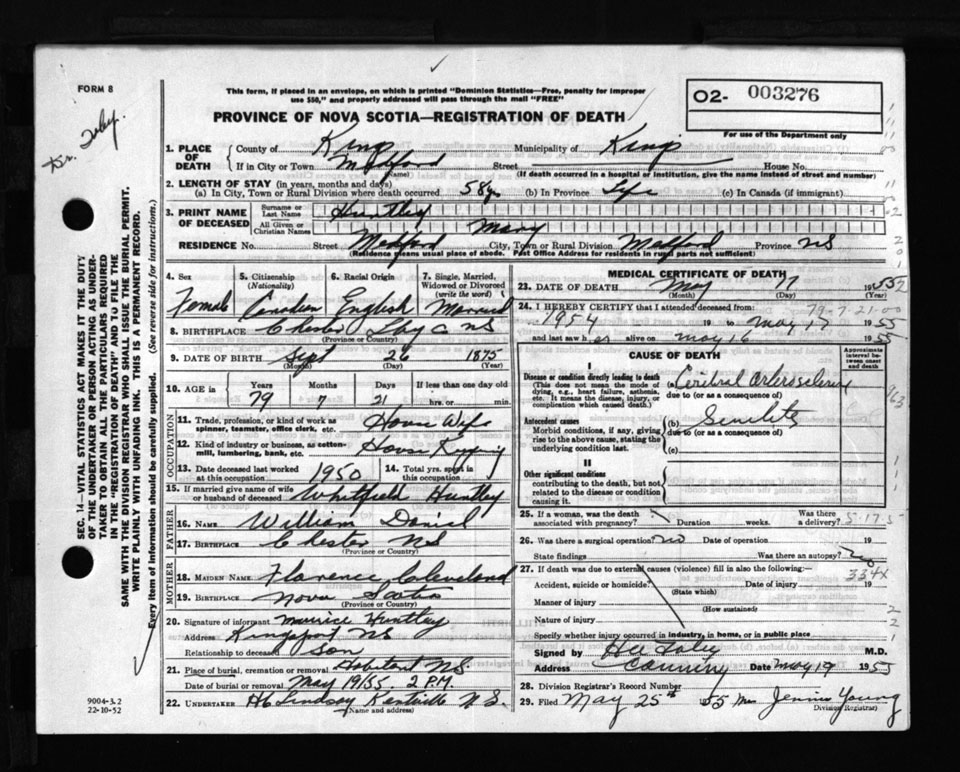 FORM 8
This form, if placed in an envelope, on which is printed "Dominion Statistics—Free, penalty for improper
use $50," and properly addressed will pass through the mail "FREE"
PROVINCE OF NOVA SCOTIA—REGISTRATION OF DEATH
O2- 003276
For use of the Department only
Dr. Foley.
1. PLACE OF DEATH
County of Kings Municipality of Kings
If in City or Town Medford Street House No.
(Name) (If death occurred in a hospital or institution, give its name instead of street and number)
2. LENGTH OF STAY (in years, months and days)
(a) In City, Town or Rural Division where death occurred 58 yrs (b) In Province Life (c) In Canada (if immigrant)
3. PRINT NAME OF DECEASED
Surname or Last Name Huntley
All Given or Christian Names Mary
RESIDENCE No. Street Medford City, Town or Rural Division Medford Province NS
(Residence means usual place of abode. Post Office Address for residents in rural parts not sufficient)
4. Sex
Female
5. Citizenship (Nationality)
Canadian
6. Racial Origin
English
7. Single, Married, Widowed or Divorced (write the word)
Married
8. BIRTHPLACE Chester NS
(Province or Country)
9. DATE OF BIRTH Sept 26 1875
(Month) (Day) (Year)
10. AGE in
Years Months Days If less than one day old
79 7 21 hrs. or min.
OCCUPATION
11. Trade, profession, or kind of work as spinner, teamster, office clerk, etc. House Wife
12. Kind of industry or business, as cotton-mill, lumbering, bank, etc. House Keeping
13. Date deceased last worked at this occupation 1950
14. Total yrs. spent in this occupation
15. If married give name of wife or husband of deceased Whitfield Huntley
FATHER
16. NAME William Daniel
17. BIRTHPLACE Chester NS
(Province or Country)
MOTHER
18. MAIDEN NAME Florence Cleveland
19. BIRTHPLACE Nova Scotia
(Province or Country)
20. Signature of informant Maurice Huntley
Address Kingsport NS
Relationship to deceased Son
21. Place of burial, cremation or removal Habitant N.S.
Date of burial or removal May 19/55 2 P.M.
22. UNDERTAKER H C Lindsay Kentville N.S.
(Name and address)
MEDICAL CERTIFICATE OF DEATH
23. DATE OF DEATH May 17 1955
(Month) (Day) (Year)
24. I HEREBY CERTIFY that I attended deceased from:
79-7-21-00
1954 19 to May 17 1955
and last saw her alive on May 16 1955
CAUSE OF DEATH
Approximate interval between onset and death
I
Disease or condition directly leading to death
(This does not mean the mode of dying, e.g., heart failure, asthenia, etc. It means the disease, injury, or complication which caused death.)
(a) Cerebral Arterosclerosis
due to (or as a consequence of)
Antecedent causes
Morbid conditions, if any, giving rise to the above cause, stating the underlying condition last.
(b) Senility
due to (or as a consequence of)
(c)
II
Other significant conditions
contributing to the death, but not related to the disease or condition causing it.
25. If a woman, was the death associated with pregnancy? Duration weeks. Was there a delivery?
5-17-5
26. Was there a surgical operation? no Date of operation 19
State findings Was there an autopsy? no
27. If death was due to external causes (violence) fill in also the following:
334X
Accident, suicide or homicide? Date of injury 19
(State which)
Manner of injury
(How sustained)
Nature of injury
Specify whether injury occurred in industry, in home, or in public place
Signed by Foley M.D.
Address Canning Date May 19 1955
28. Division Registrar's Record Number
29. Filed May 25th 1955 Mrs Jennie Young
Division Registrar)
SEC. 14—VITAL STATISTICS ACT MAKES IT THE DUTY
OF THE UNDERTAKER OR PERSON ACTING AS UNDER-
TAKER TO OBTAIN ALL THE PARTICULARS REQUIRED
IN THE "REGISTRATION OF DEATH" AND TO FILE THE
SAME WITH THE DIVISION REGISTRAR WHO SHALL ISSUE THE BURIAL PERMIT.
WRITE PLAINLY WITH UNFADING INK. THIS IS A PERMANENT RECORD.
Every item of information should be carefully supplied. (See reverse side for instructions.)
9004-3.2
22-10-52